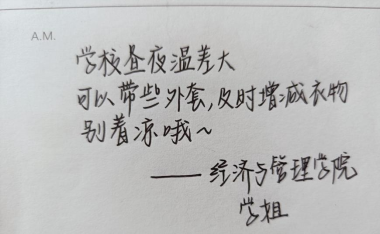 A.M.
学校昼夜温差大
可以带些外套,及时增减衣物
别着凉哦~
——经济与管理学院
学姐